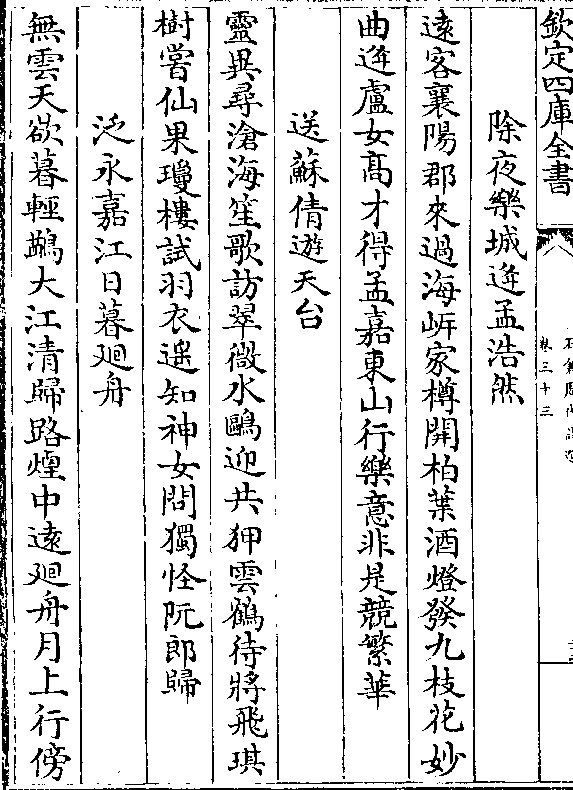 欽定四庫全書
卷三十三
除夜樂城逢孟浩然
遠客襄陽郡來過海岸家樽開柏葉酒燈發九枝花妙
曲逢盧女髙才得孟嘉東山行樂意非是競繁華
送蘇倩遊天台
靈異尋滄海笙歌訪翠微水鷗迎共狎雲鶴待將飛琪
樹嘗仙果瓊樓試羽衣遥知神女問獨怪阮郎歸
泛永嘉江日暮廻舟
無雲天欲暮輕鷁大江清歸路煙中遠廻舟月上行傍